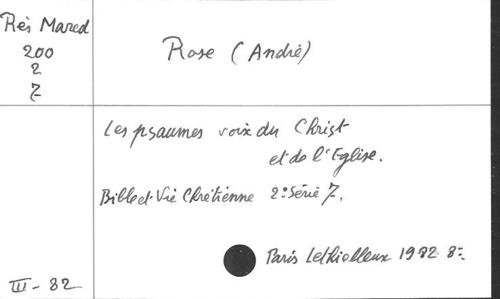 Rés Mared
200
2
7
Rose (André)
Les psaumes voix du Christ
et de l'Eglise.
Bible et Vie Chrétienne 2e Série 7.
Paris Lethielleux 1982 8=
III - 82